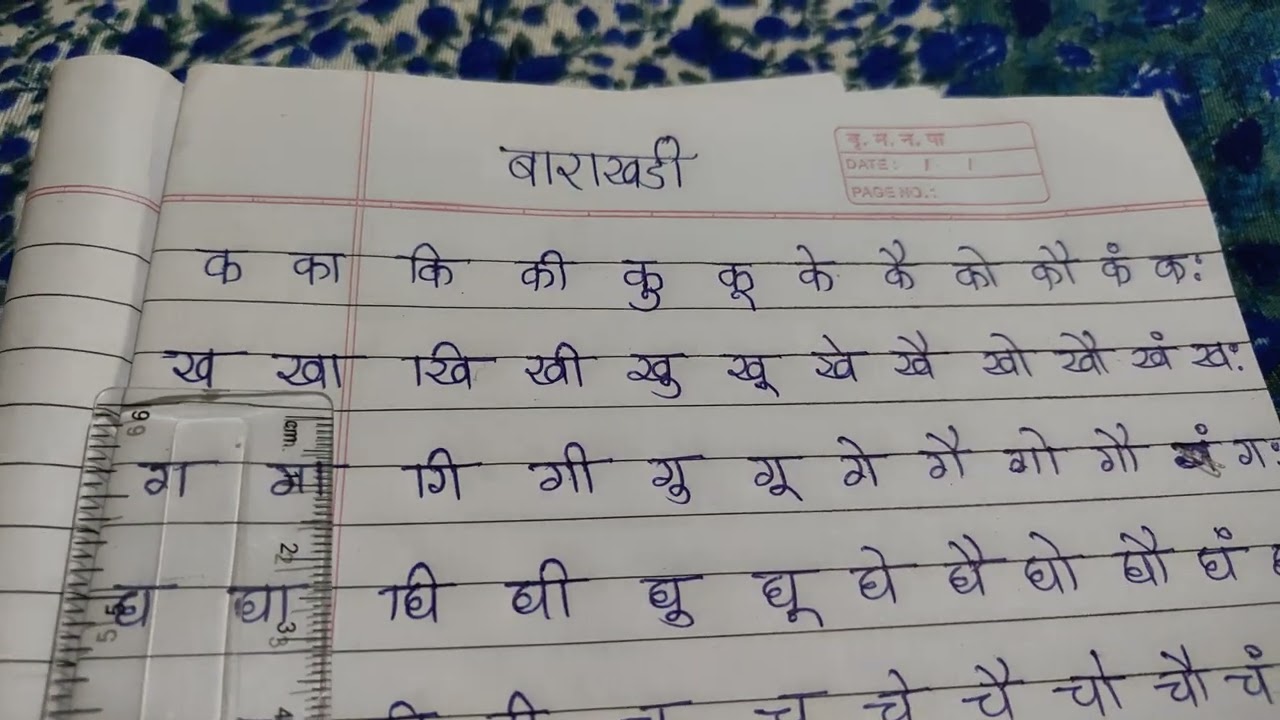 बाराखडी
बृ. म. न. पा
DATE: / /
PAGE NO.:
क का कि की कु कू के कै को कौ कं कः
ख खा खि खी खु खू खे खै खो खौ खं खः
ग गा गि गी गु गू गे गै गो गौ गं गः
घ घा घि घी घु घू घे घै घो घौ घं
चे चै चो चौ चं
cm
2
3
4